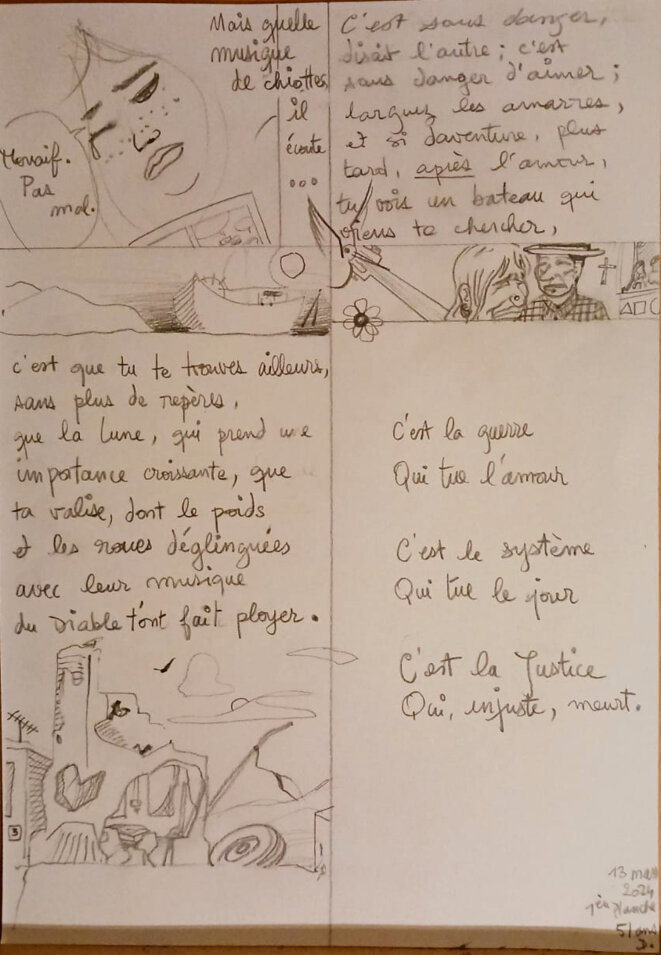 Mais quelle
musique
de chiottes
il
écoute
...
Mouaif.
Pas
mal.
C'est sans danger,
disait l'autre ; c'est
sans danger d'aimer ;
larguez les amarres,
et si d'aventure, plus
tard, après l'amour,
tu vois un bateau qui
viens te chercher,
c'est que tu te trouves ailleurs,
sans plus de repères,
que la Lune, qui prend une
importance croissante, que
ta valise, dont le poids
et les roues déglinguées
avec leur musique
du Diable t'ont fait ployer.
C'est la guerre
Qui tue l'amour
C'est le système
Qui tue le jour
C'est la Justice
Qui, injuste, meurt.
3
13 mars
2024
1ère Planche
51 ans
D.